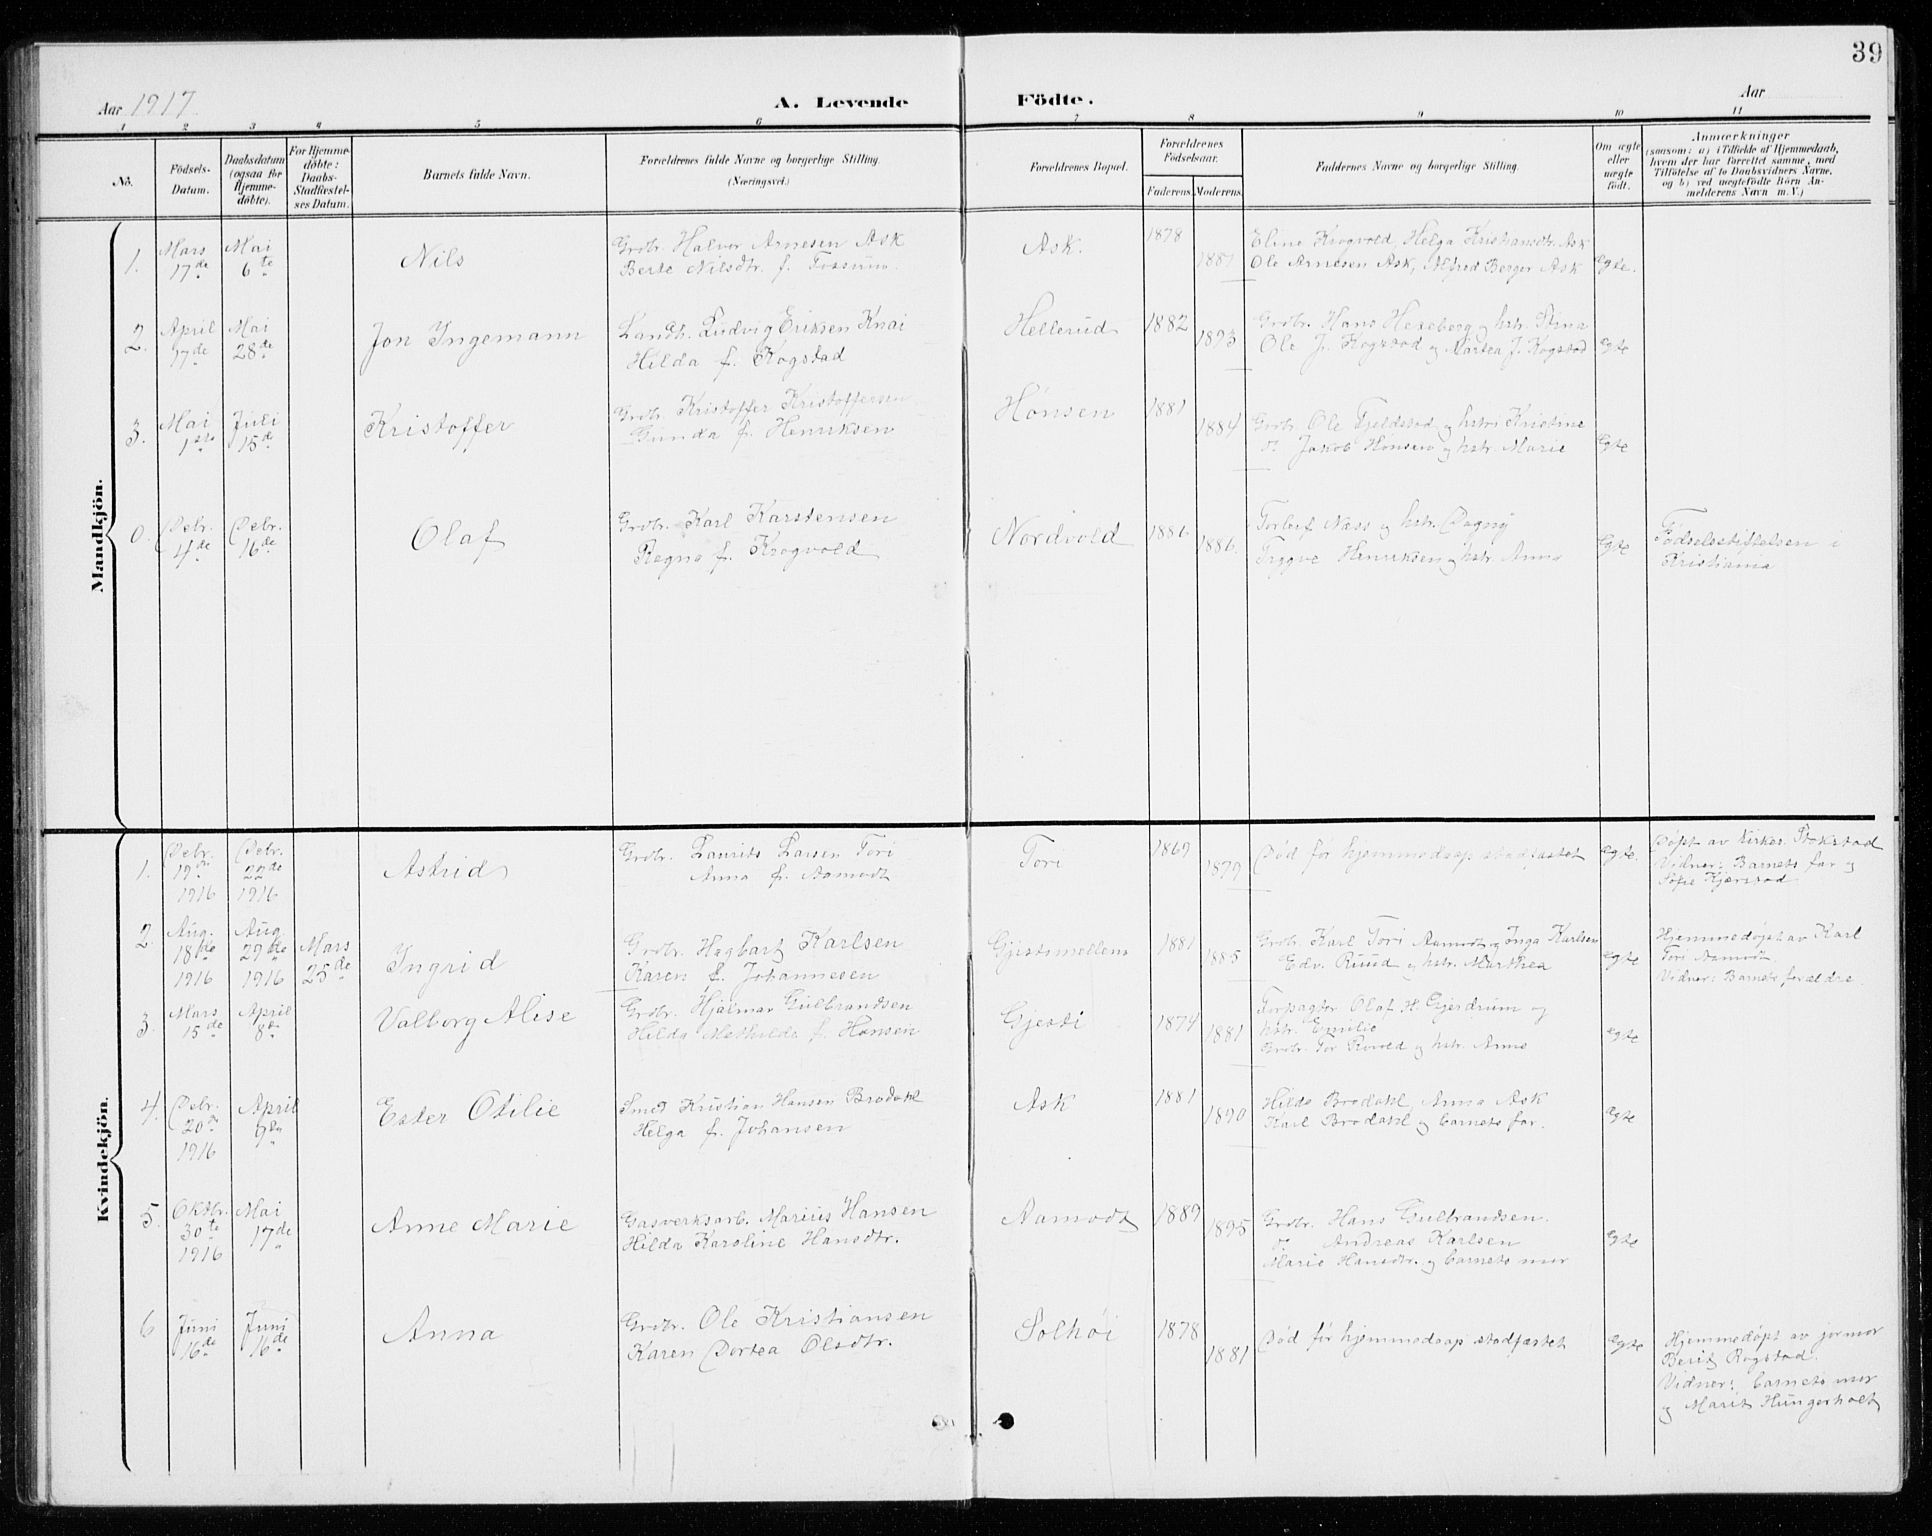 39
Aar 1917
A. Levende Födte.
Aar
1 2 3 4 5 6 7 8 9 10 11
No.
Födsels-
Datum.
Daabsdatum
(ogsaa for
Hjemme-
döbte).
For Hjemme-
döbte:
Daabs-
Stadfæstel-
ses Datum.
Barnets fulde Navn.
Forældrenes fulde Navne og borgerlige Stilling.
(Næringsvei.)
Forældrenes Bopæl.
Forældrenes
Födselsaar.
Faderens. Moderens.
Faddernes Navne og borgerlige Stilling.
Om ægte
eller
uægte
født.
Anmærkninger
(saasom: a) i Tilfælde af Hjemmedaab,
hvem der har forrettet samme, med
Tilföielse af to Daabsvidners Navne,
og b) ved uægtefödte Börn An-
melderens Navn m. V.)
Mandkjön.
1. Mars 17de Mai 6te Nils
Grdbr. Halvor Arnesen Ask
Berte Nilsdtr. f. Fossum.
Ask. 1878 1881
Eline Krogvold, Helga Kristiansdtr. Ask
Ole Arnesen Ask, Alfred Berger Ask
Egte.
2. April 17de Mai 28de Jon Ingemann
Landh. Ludvig Eriksen Knai
Hilda f. Kogstad
Hellerud 1882 1893
Grdbr. Hans Hexeberg og hstr. Stina
Ole J. Kogstad og Martea J. Kogstad
Egte
3. Mai 1ste Juli 15de Kristoffer
Grdbr. Kristoffer Kristoffersen
Gunda f. Henriksen
Hönsen 1881 1884
Grdbr. Ole Fjeldstad og hstri Kristine
Do. Jakob Hönsen og hstr. Marie
Egte
0. Febr. 4de Febr. 16de Olaf
Grdbr. Karl Karstensen
Ragna f. Krogvold
Nordvold 1886 1886.
Torleif Næss og hstr. Dagny
Tryggve Henriksen og hstr. Anna
Egte
Fødselsstiftelsen i
Kristiania
Kvindekjön.
1. Febr. 19de 1916 Febr. 22de 1916 Astrid
Grdbr. Laurits Larsen Tori
Anna f. Aamodt
Tori 1869 1879
Død før hjemmedaap stadfæstet
Egte.
Døpt av Kirkes. Stokstad
Vidner: Barnets far og
Sofie Kjærstad
2. Aug. 18de 1916 Aug. 29de 1916 Mars 25de Ingrid
Grdbr. Hagbart Karlsen
Karen f. Johannesen
Gjestimellem 1881 1885
Grdbr. Karl Tori Aamodt og Inga Karlsen
Edv. Ruud og hstr. Marthea
Egte
Hjemmedøpt av Karl
Tori Aamodt.
Vidner: Barnets forældre.
3. Mars 15de April 8de Valborg Alise
Grdbr. Hjalmar Gulbrandsen
Hilda Mathilde f. Hansen
Gjesti 1874 1881
Forpagter Olaf H. Gjerdrum og
hstr. Emilie
Grdbr. Tor Rovold og hstr. Anna
Egte
4. Febr. 20de 1916 April 9de Ester Otilie
Smed Kristian Hansen Brodahl
Helga f. Johansen
Ask 1881 1890
Hilda Brodahl, Anna Ask
Karl Brodahl og barnets far.
Egte
5. Oktbr. 30te 1916 Mai 17de Anne Marie
Gasverksarb. Marius Hansen
Hilda Karoline Hansdtr.
Aamodt 1889 1895
Grdbr. Hans Gulbrandsen.
Do. Andreas Karlsen
Marie Hansdtr. og barnets mor
Egte
6 Juni 16de Juni 16de Anna
Grdbr. Ole Kristiansen
Karen Dortea Olsdtr.
Solhöi 1878 1881
Død før hjemmedaap stadfæstet
Egte
Hjemmedøpt av jormor
Berit Rogstad.
Vidner: barnets mor
og Marit Hungerholt